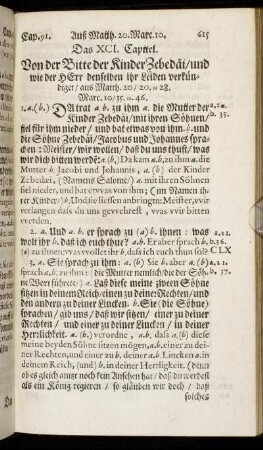 Cap. 91. Auß Matth. 20. Marc. 10. 615
Das XCI. Capitel.
Von der Bitte der Kinder Zebedäi/ und
wie der HErr denselben ihr Leiden verkün-
diget/ aus Matth. 20/20. = 28.
Marc. 10/35. = 46.
1. a. (b.) DA trat a. b. zu ihm a. die Mutter der a. 20.
Kinder Zebedäi/ mit ihren Söhnen/ b. 35.
fiel für ihm nieder/ und bat etwas von ihm. b. und
die Söhne Zebedäi/ Jacobus und Johannes spra-
chen: Meister/ wir wollen/ daß du uns thust/ was
wir dich bitten werde: a. (b.) Da kam a. b. zu ihm a. die
Mutter b. Jacobi und Johannis, a. (b.) der Kinder
Zebedæi, (Namens Salome/) a. mit ihren Söhnen
fiel nieder, und bat etwas von ihm; (im Namen ih-
rer Kinder) b. Und sie liessen anbringen: Meister, wir
verlangen daß du uns gewehrest, was wir bitten
werden.
2. a. Und a. b. er sprach zu (a) b. ihnen: was a. 21.
wolt ihr b. daß ich euch thue? a. b. Er aber sprach b. b. 36.
zu ihnen, was wollet ihr b. daß ich euch thun soll? CLX
3. a. Sie sprach zu ihm: a. (b.) Sie b. aber a. (b.) a. 21.
sprach a. b. zu ihm: (die Mutter nemlich/ die der Söh- b. 37.
ne Wort führete) a. Laß diese meine zween Söhne
sitzen in deinem Reich einen zu deiner Rechten/ und
den andern zu deiner Lincken. b. Sie (die Söhne)
sprachen/ gib uns/ daß wir sitzen/ einer zu deiner
Rechten/ und einer zu deiner Lincken/ in deiner
Herrlichkeit. a. (b.) verordne, a. b. daß a (b) diese
meine beyden Söhne sitzen mögen, a. b. einer zu dei-
ner Rechten, und einer zu b. deiner a. b. Lincken a. in
deinem Reich, (und) b. in deiner Herrligkeit. (dann
ob es gleich anitzt noch kein Ansehen hat/ daß du werdest
als ein König regieren/ so gläuben wir doch/ daß
solches